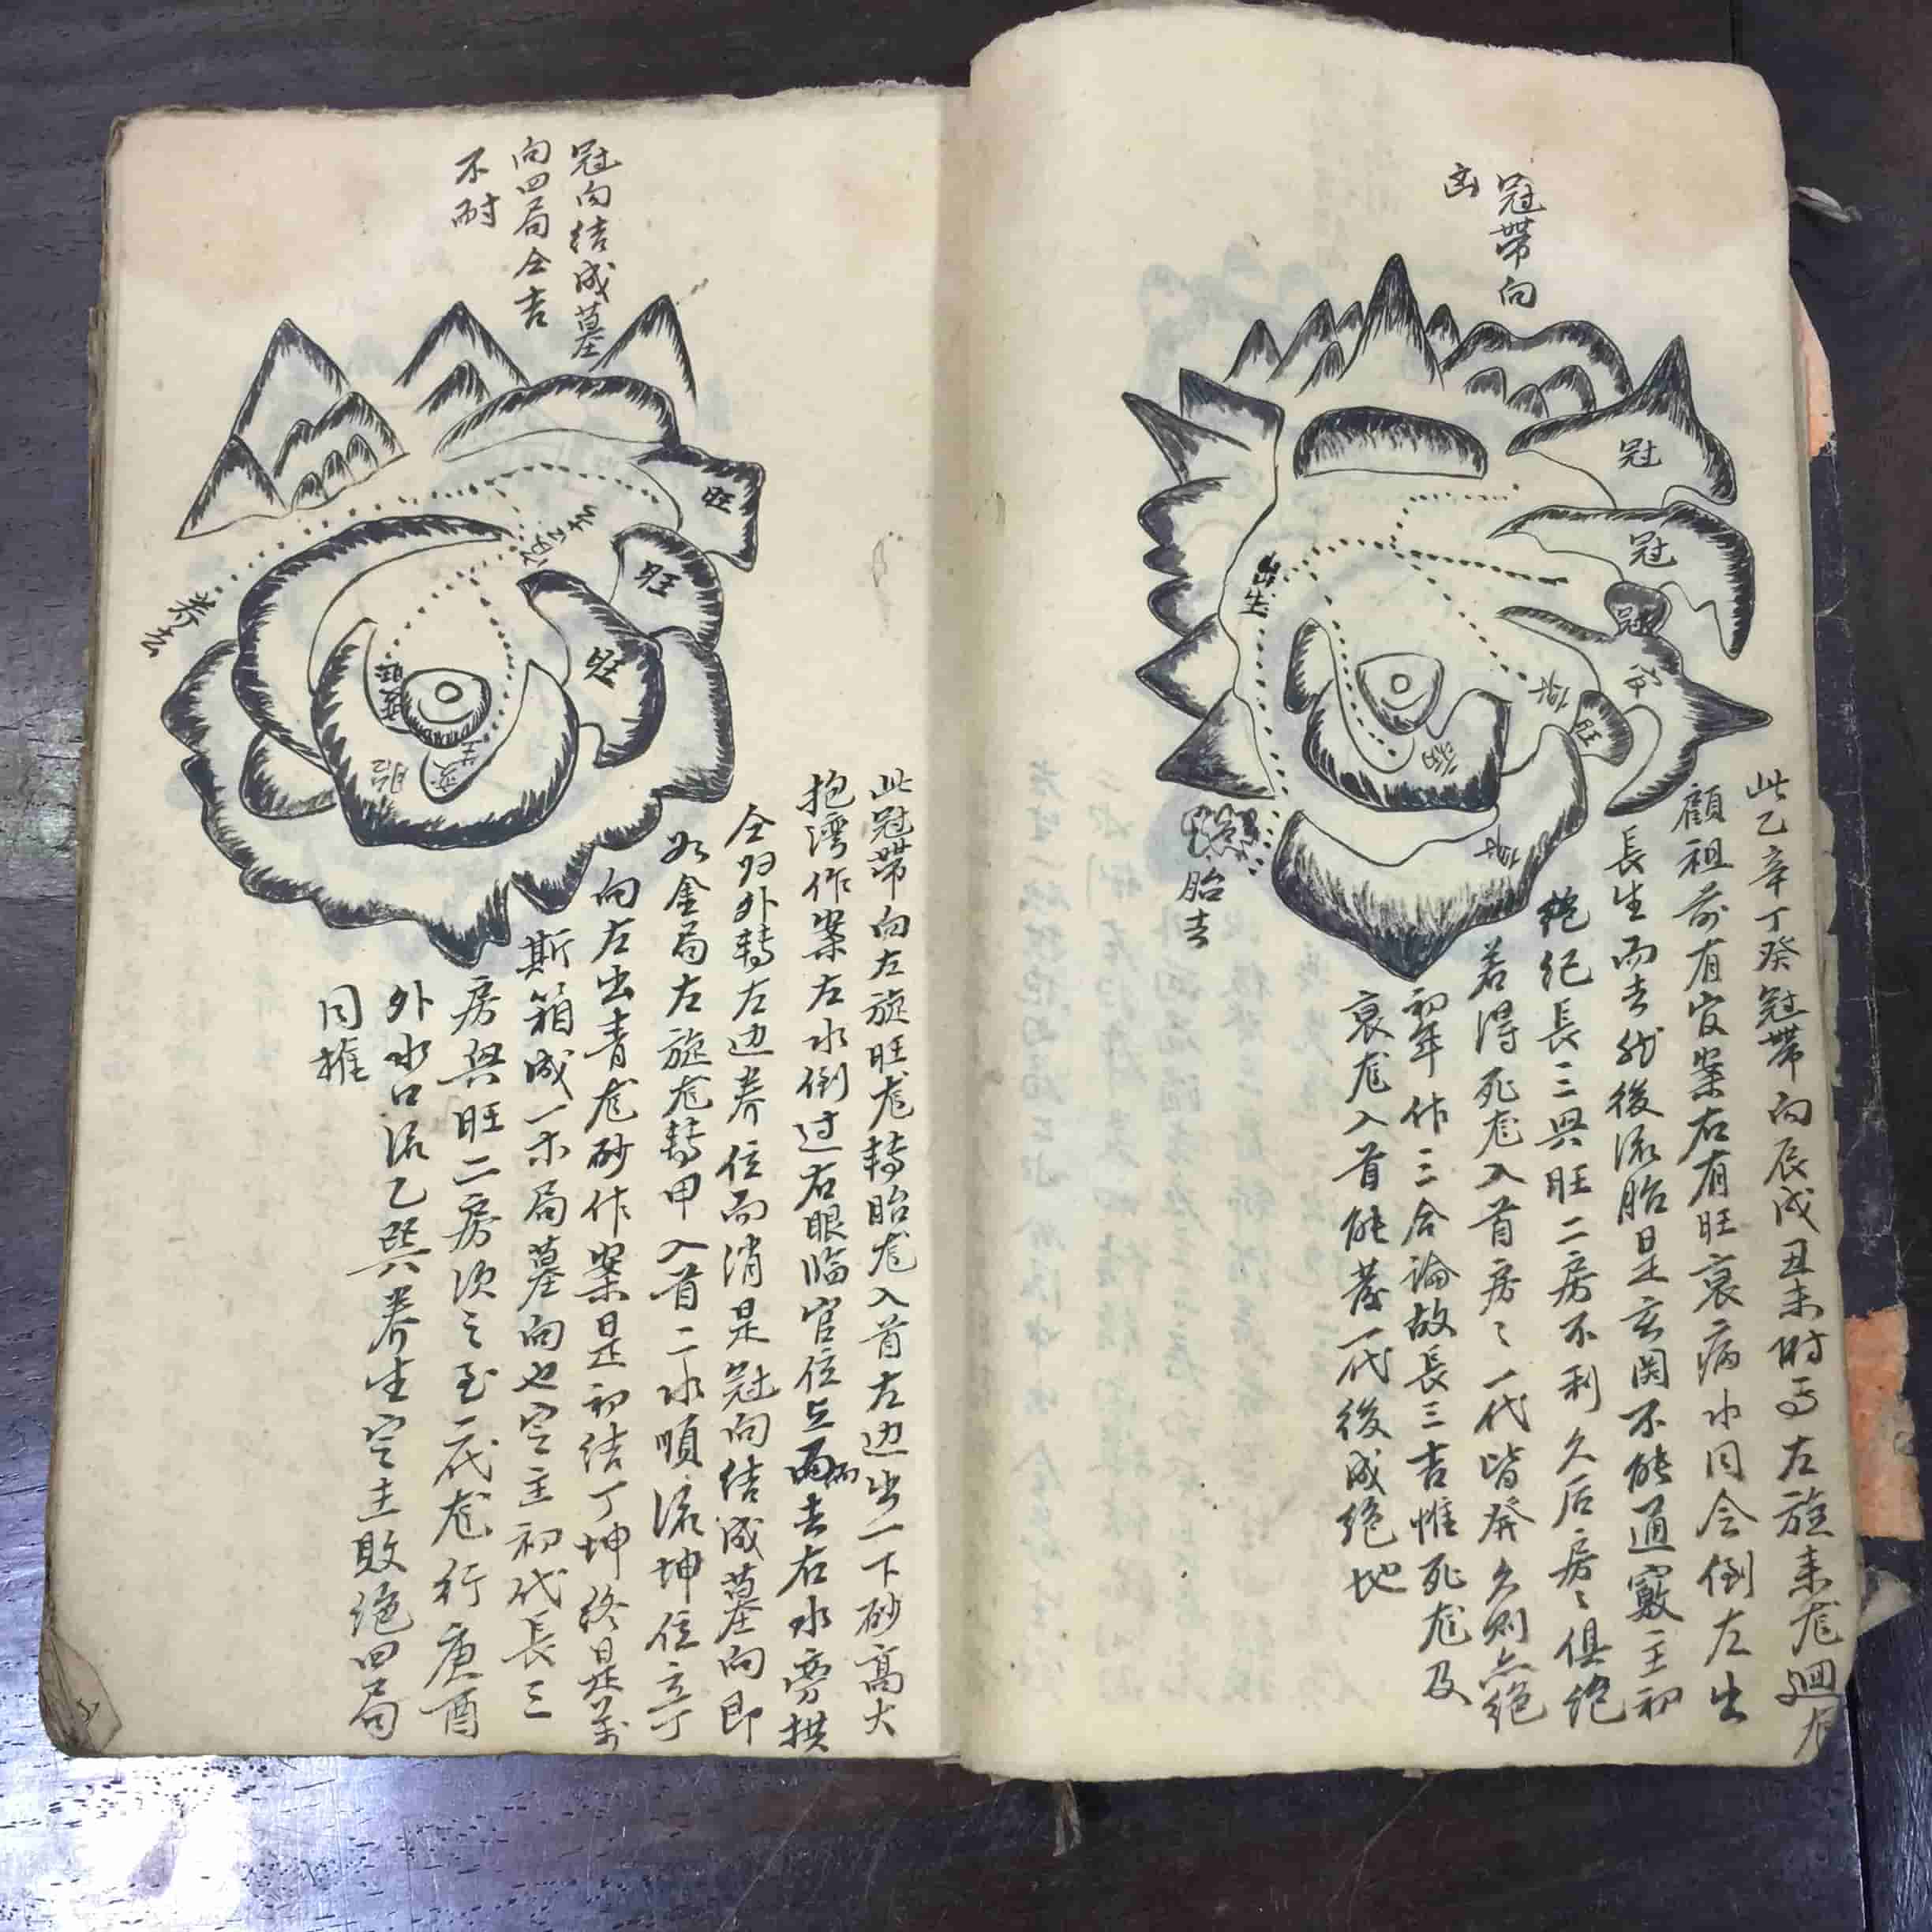 冠帶向
凶
冠
冠
冠
旺
出生
胎去
此乙辛丁癸冠帶向辰戌丑未時馬左旋来竜廻右
顧祖前有官案右有旺衰病水同会倒左出
長生而去然後流胎是玄関不能通竅主初
絶絶長三與旺二房不利久后房〻俱绝
若得死竜入首房〻一代皆發久则点绝
初年作三合論故長三吉惟死竜及
衰竜入首能發一代後成绝地
冠向结成墓
向四局仝吉
不耐
旺
旺
旺
养去
胎
此冠帶向左旋旺竜轉胎竜入首左边出一下砂高大
抱湾作案左水倒过右眼临官位丘丙去右水旁拱
仝归外轉左边养位而消是冠向结成墓向即
如金局左旋竜轉甲入首二水順流坤位立丁
向左出青竜砂作案是初结丁坤终是萬
斯箱成一木局墓向也定主初代長三
房與旺二房次之至二代竜行庚酉
外水口流乙巽养生定主敗绝四局
同推